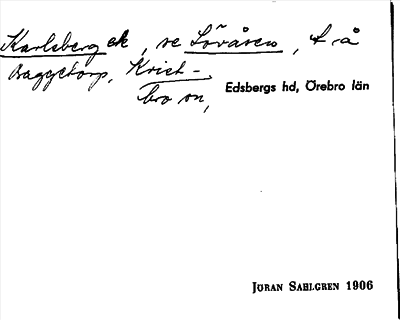 Karlsberg ek, se Lövåsen, t. å
Baggetorp, Krist-
bro sn,
Edsbergs hd, Örebro län
JÖRAN SAHLGREN 1906